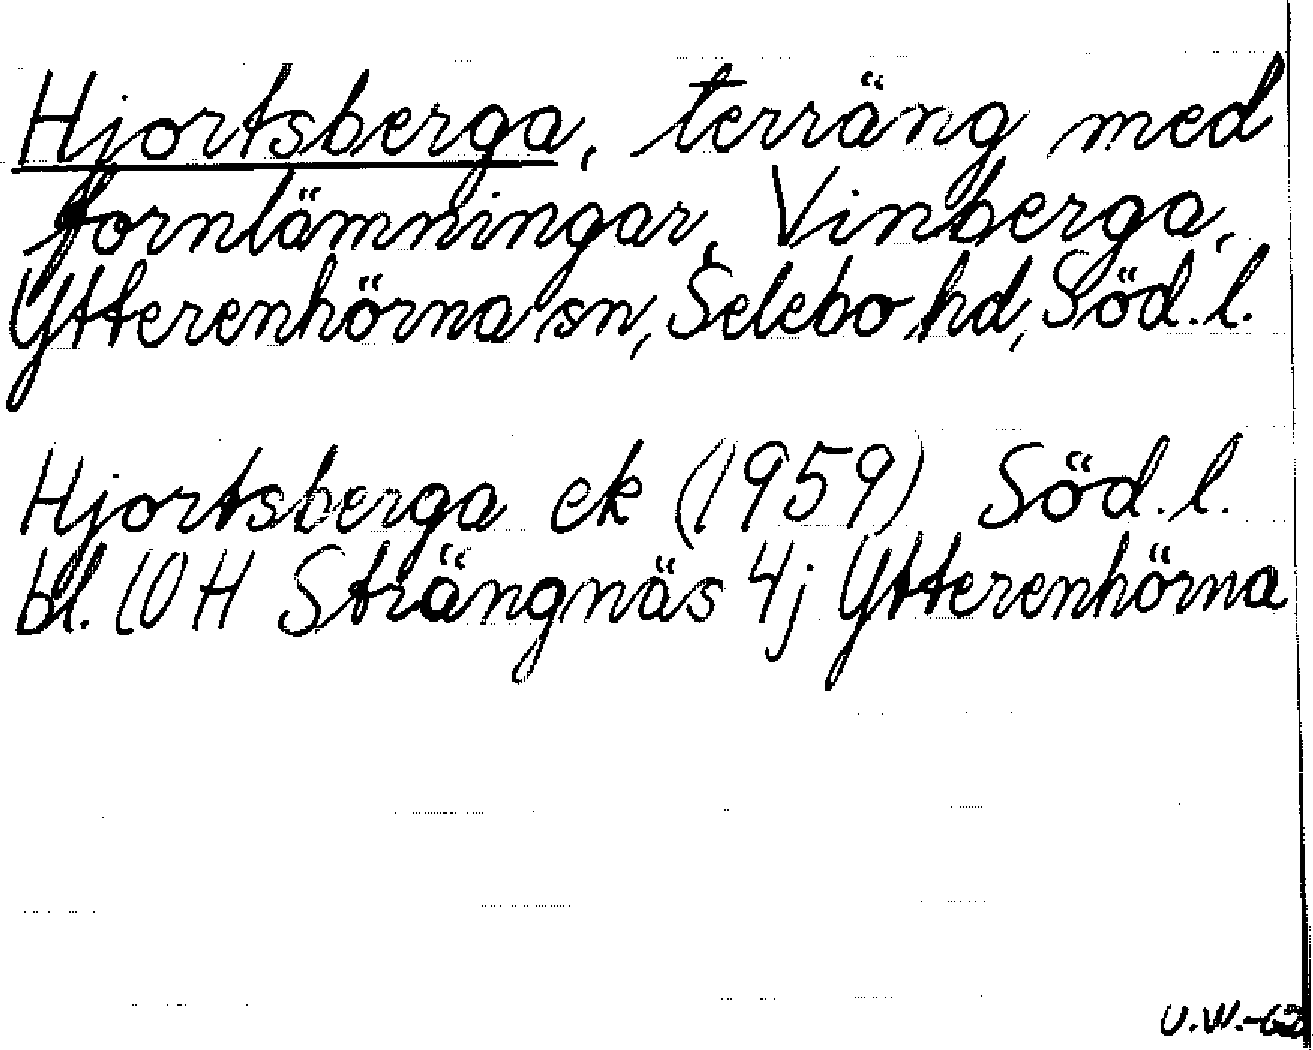 Hjortsberga, terräng med
fornlämningar, Vinberga,
Ytterenhörna sn, Selebo hd, Söd.l.
Hjortsberga ek (1959) Söd.l.
bl. 10 H Strängnäs 4j Ytterenhörna
U.W.-62